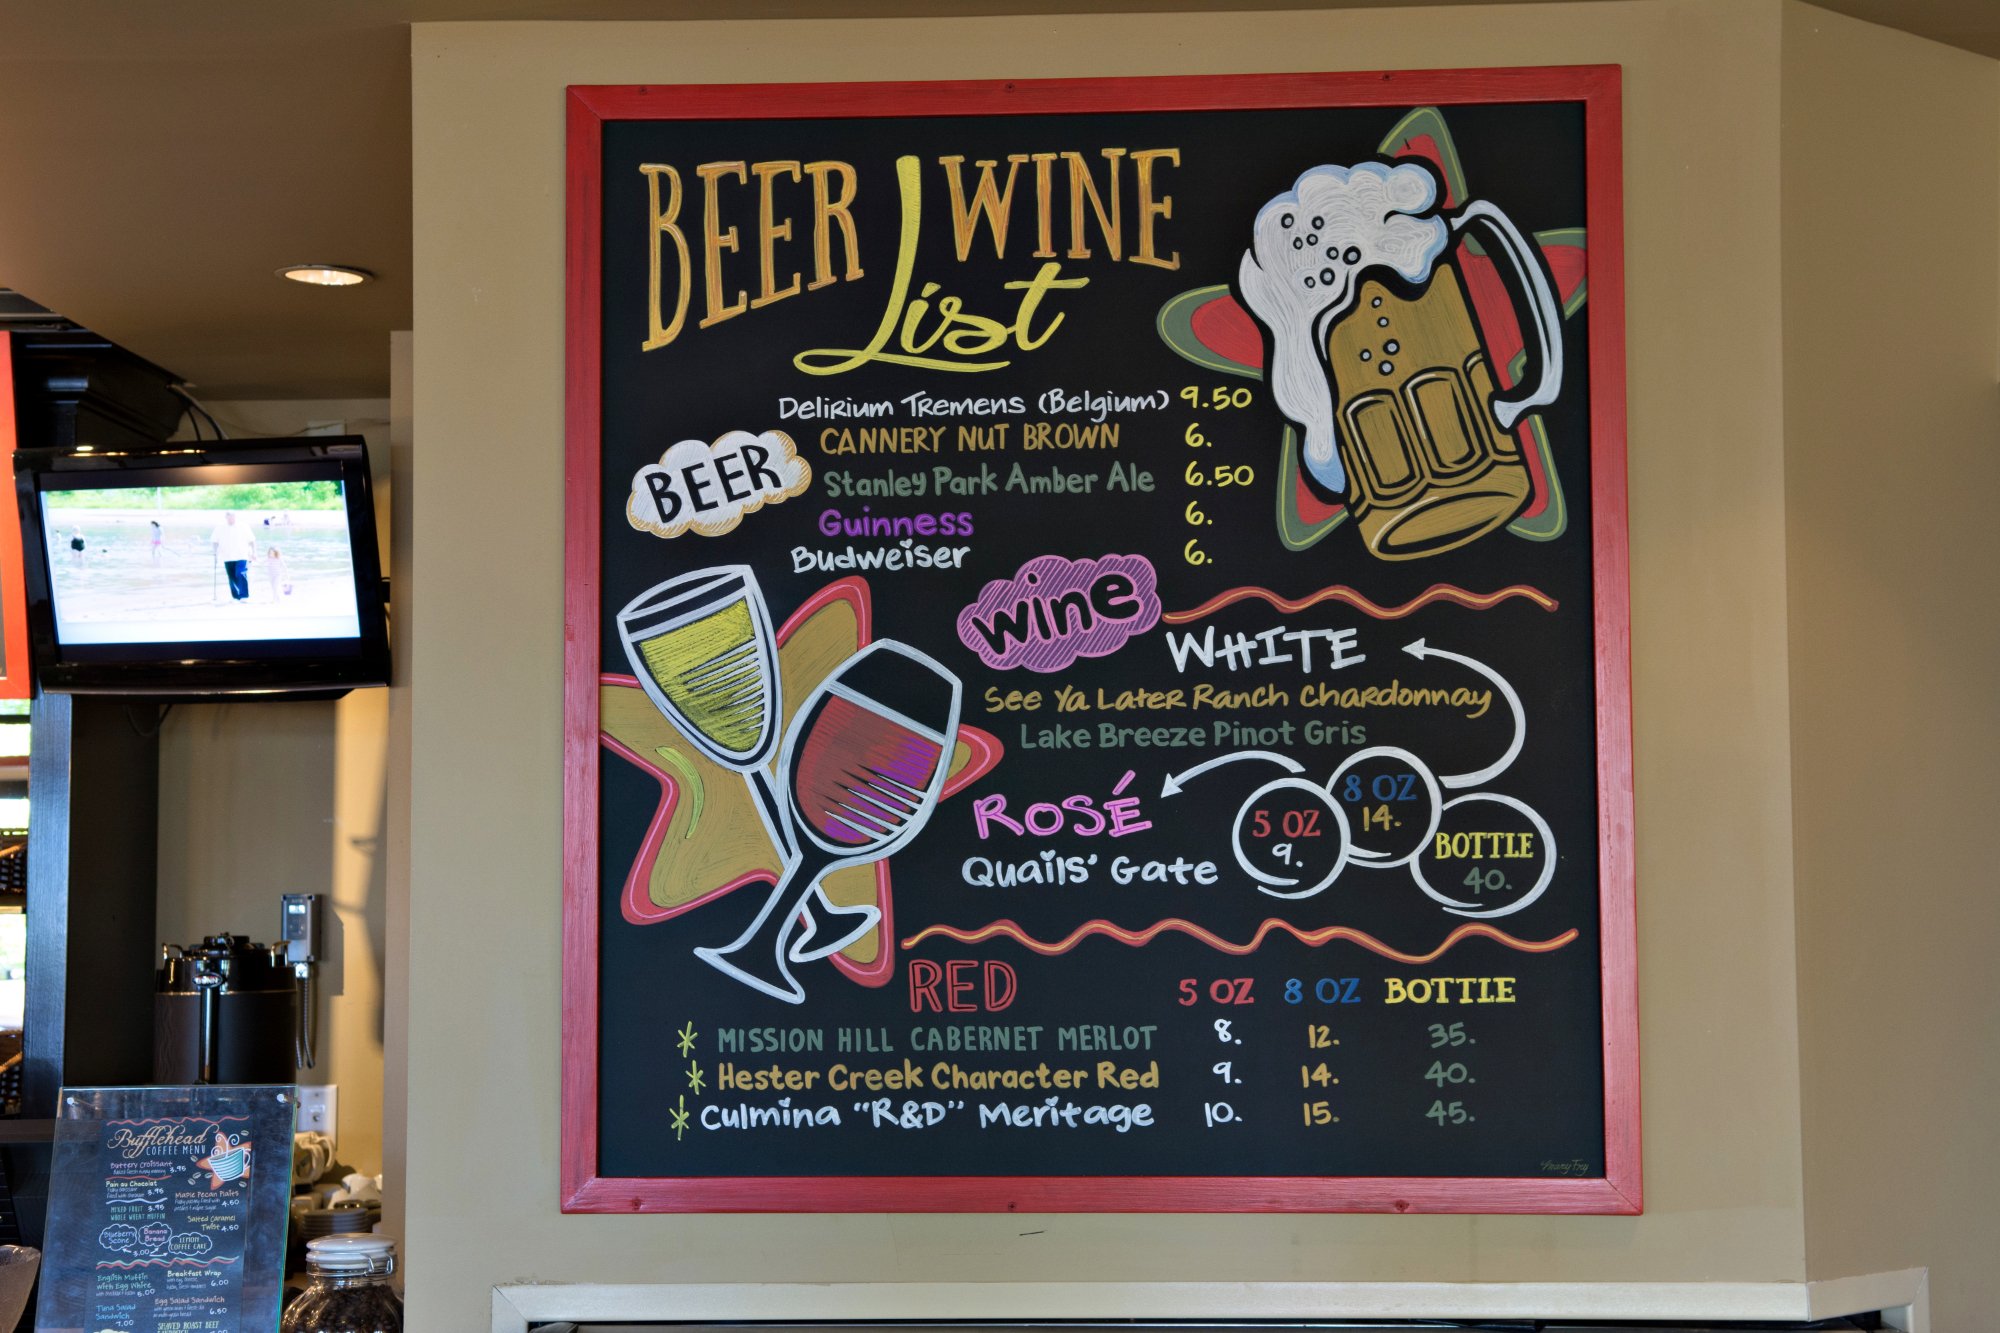 BEER WINE
List
Delirium Tremens (Belgium) 9.50
CANNERY NUT BROWN 6.
BEER
Stanley Park Amber Ale 6.50
Guinness 6.
Budweiser 6.
wine
WHITE
See Ya Later Ranch Chardonnay
Lake Breeze Pinot Gris
ROSÉ
Quails' Gate
5 OZ
9.
8 OZ
14.
BOTTLE
40.
RED 5 OZ 8 OZ BOTTLE
* MISSION HILL CABERNET MERLOT 8. 12. 35.
* Hester Creek Character Red 9. 14. 40.
* Culmina "R&D" Meritage 10. 15. 45.
Bufflehead
COFFEE MENU
Buttery Croissant 3.95
Pain au Chocolat
3.95
Maple Pecan Plaits
4.50
MIXED FRUIT 3.95
WHOLE WHEAT MUFFIN
Salted Caramel
Twist 4.50
Blueberry
Scone
Banana
Bread
LEMON
COFFEE CAKE
3.00
English Muffin
with Egg White
5.00
Breakfast Wrap
6.00
Tuna Salad
Sandwich
7.00
Egg Salad Sandwich
6.50
SHAVED ROAST BEEF